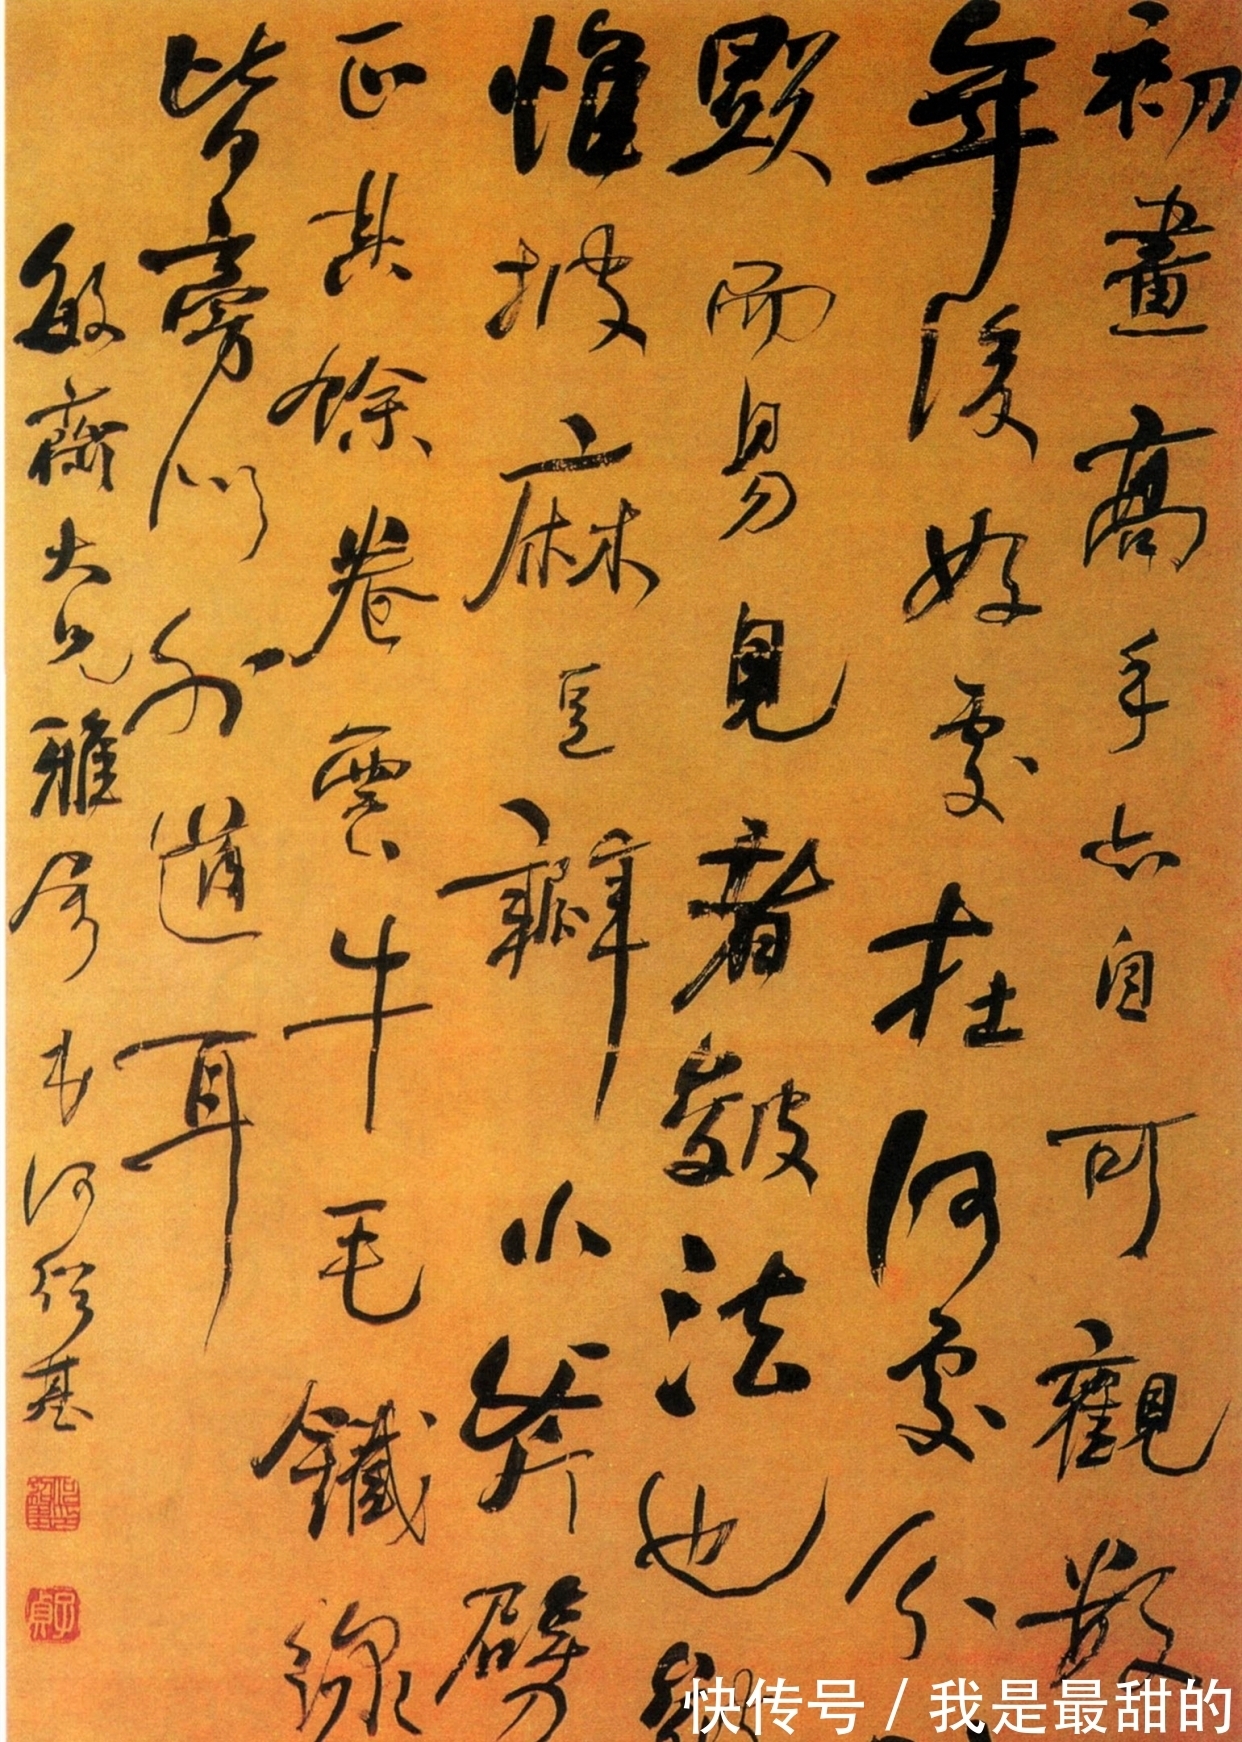 初畫高手亦自可觀數
年後好處在何處分
顯而易見者皴法也皴
惟披麻豆瓣小斧劈
正其餘卷雲牛毛鐵線
皆旁門外道耳
敏齋大兄雅屬 書 何紹基
子貞
快传号 / 我是最甜的